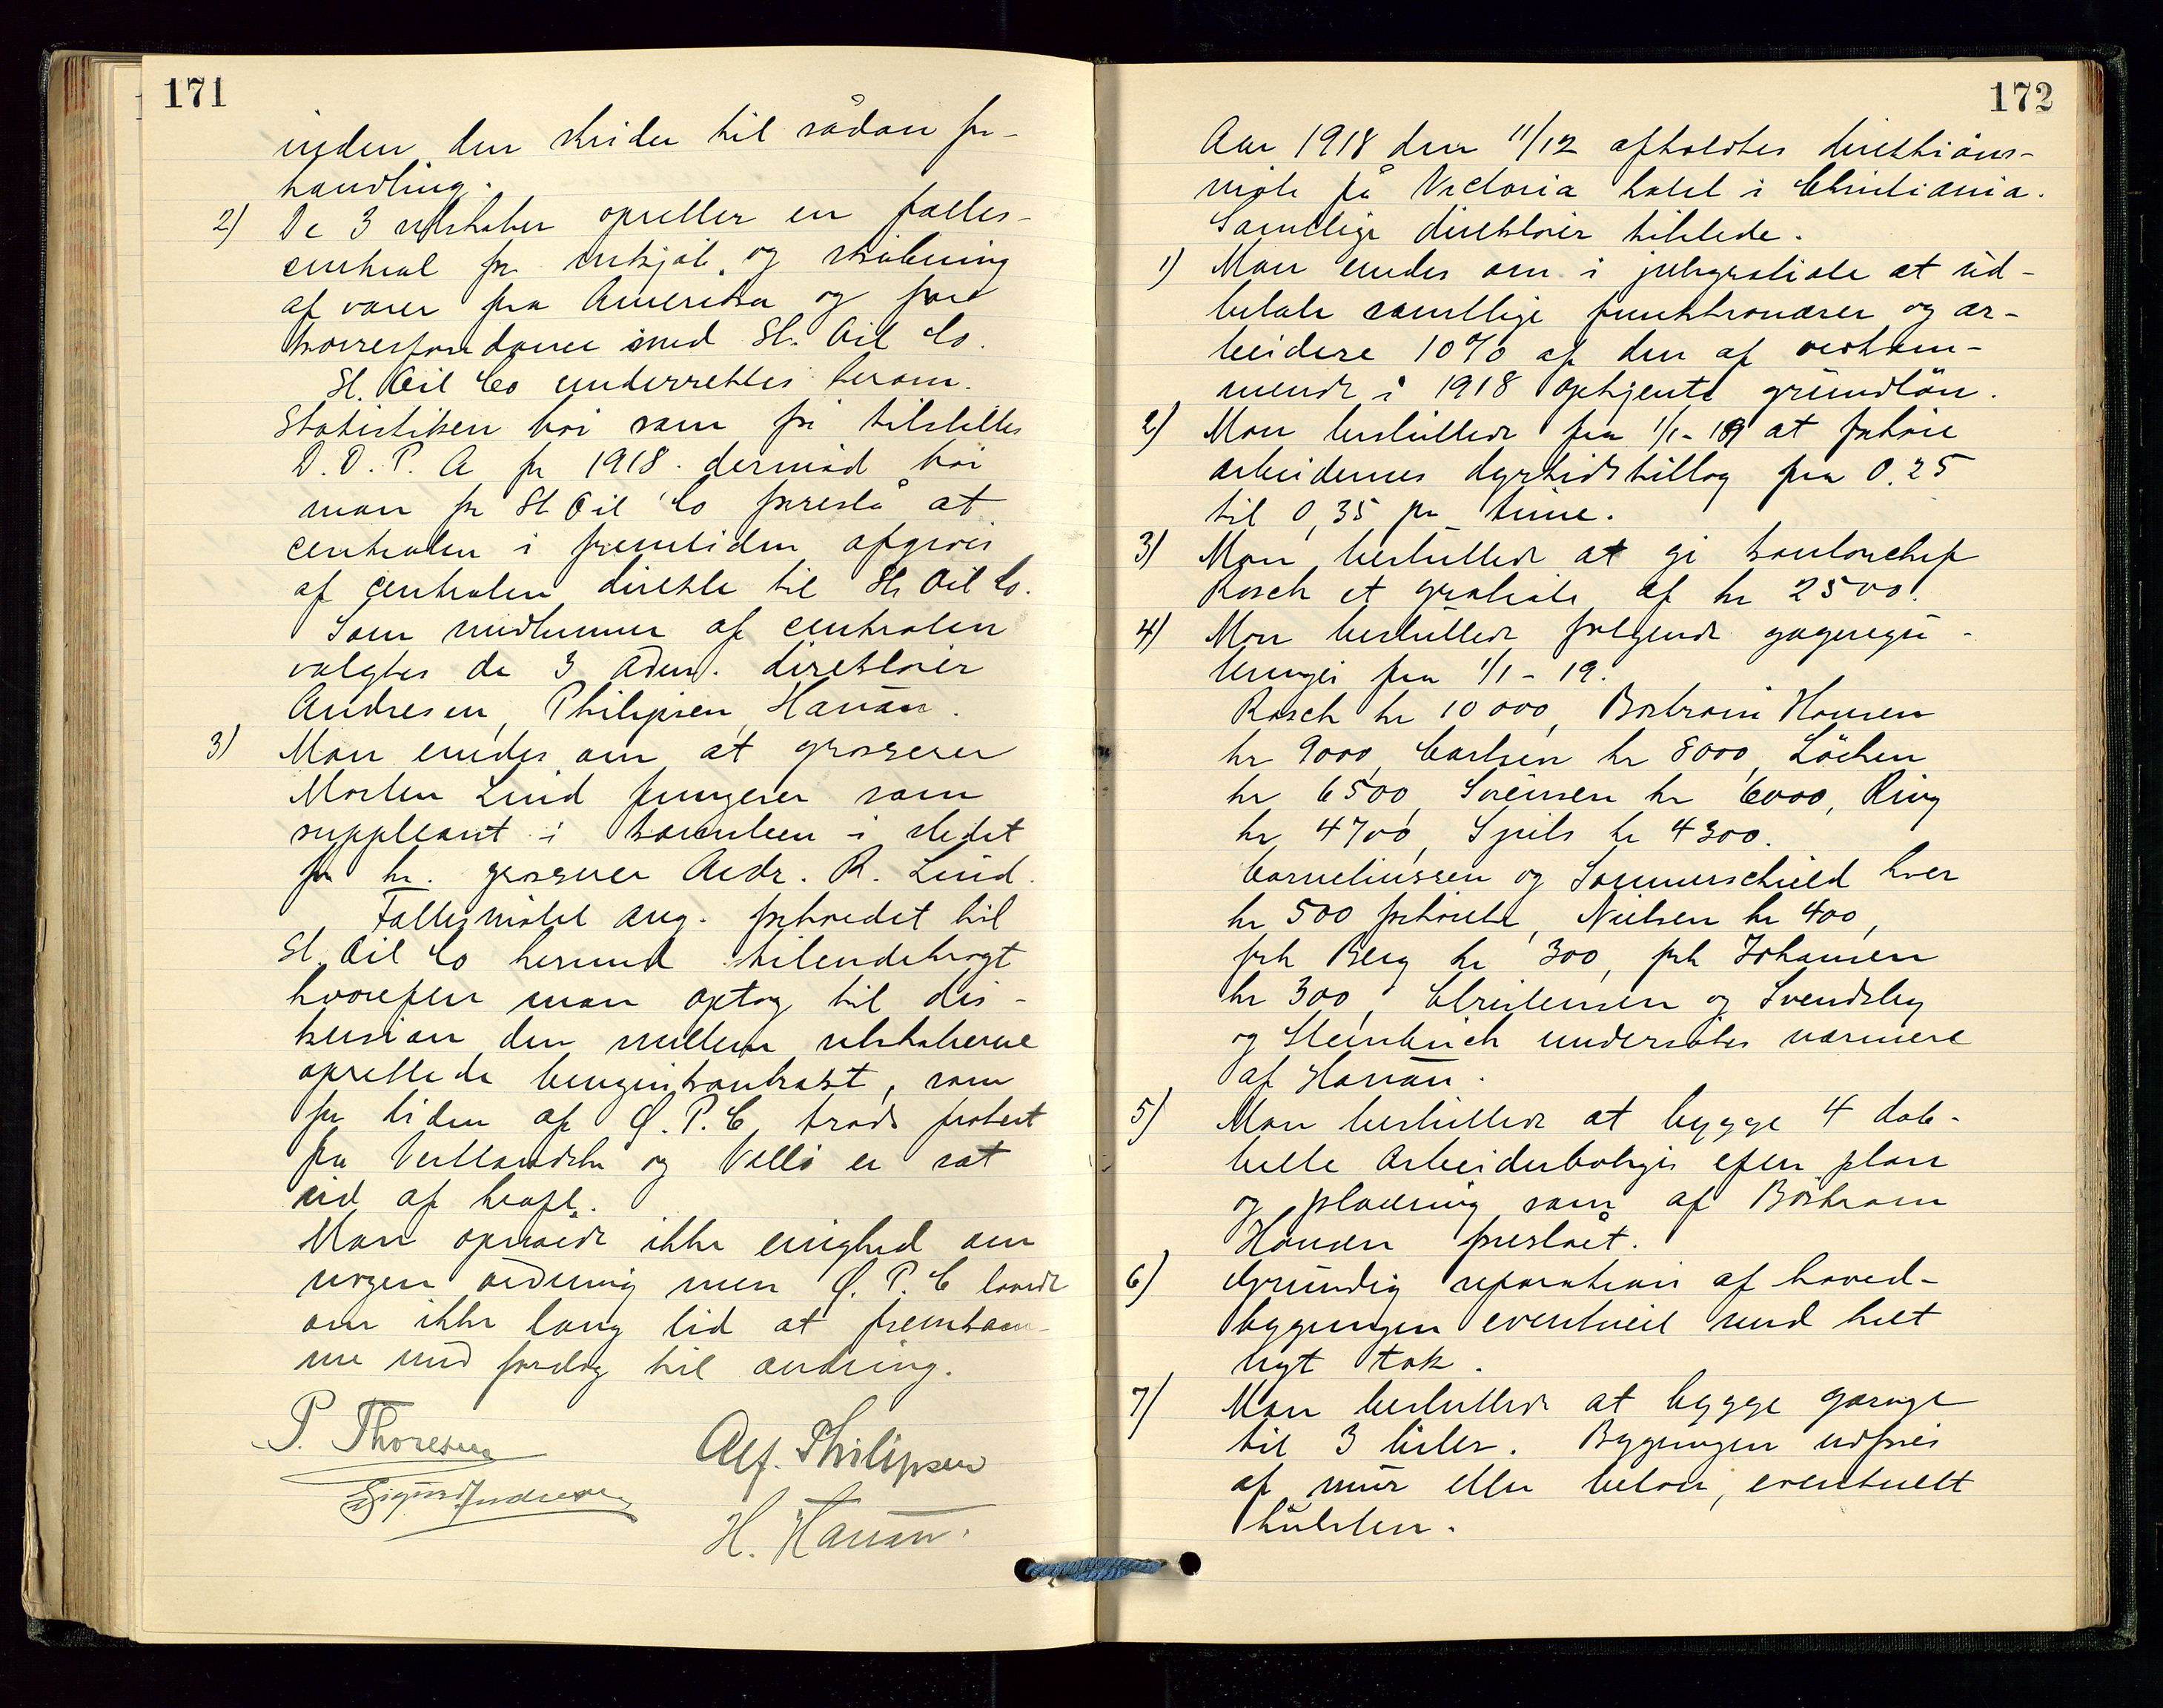 171
inden den skrider til sådan for-
handling.
2) De 3 selskaber opretter en fælles-
central for inkjøb og skibning
af varer fra Amerika og for
korrespondance med St. Oil Co.
St. Oil Co underrettes herom.
Statistiken bør som før tilstilles
D.D.P.A for 1918. dermed bør
man for St Oil Co foreslå at
centralen i fremtiden afgives
af centralen direkte til St Oil Co.
Som medlemmer af centralen
valgtes de 3 adm. direktører
Andresen, Philipsen, Hanan.
3) Man enedes om at grosserer
Morten Lind fungerer som
suppleant i komiteen i stedet
for hr. grosserer Andr. R. Lind.
Fællesmøtet ang. forholdet til
St. Oil Co hermed tilendebragt
hvorefter man optog til dis-
kusion den mellem selskaberne
oprettede benzinkontrakt, som
for tiden af Ø.P.C. trods protest
fra Vestlandske og Vallø er sat
ud af kraft.
Man opnåede ikke enighed om
nogen ordning men Ø.P.C lovede
om ikke lang tid at fremkom-
me med forslag til ændring.
P. Thoresen
Alf. Philipsen
Sigurd Andresen
H. Hanan.
172
Aar 1918 den 11/12 afholdtes direktions-
møte på Victoria hotel i Christiania.
Samtlige direktører tilstede.
1) Man enedes om i julegratiale at ud-
betale samtlige funktionærer og ar-
beidere 10% af den af vedkom-
mende i 1918 optjente grundløn.
2) Man besluttede fra 1/1-19 at forhøie
arbeidernes dyrtidstillæg fra 0.25
til 0,35 pr time.
3) Man besluttede at gi kontorchef
Rosch et gratiale af kr 2500.
4) Man besluttede følgende gageregu-
leringer fra 1/1-19.
Rosch kr 10000, Boström Hansen
kr 9000, Carlsen kr 8000, Löchen
kr 6500, Sörensen kr 6000, Ring
kr 4700, Spils kr 4300.
Corneliussen og Sommerschield hver
kr 500 forhøielse, Nielsen kr 400,
frk Berg kr 300, frk Johansen
kr 300, Christensen og Svendsby
og Steinbuch undersøkes nærmere
af Hanan.
5) Man besluttede at bygge 4 dob-
belte Arbeiderboliger efter plan
og placering som af Boström
Hansen foreslået.
6) Grundig reparation af hoved-
bygningen eventuelt med helt
nyt tak.
7) Man besluttede at bygge garage
til 3 biler. Bygningen udføres
af mur eller beton, eventuelt
hulsten.